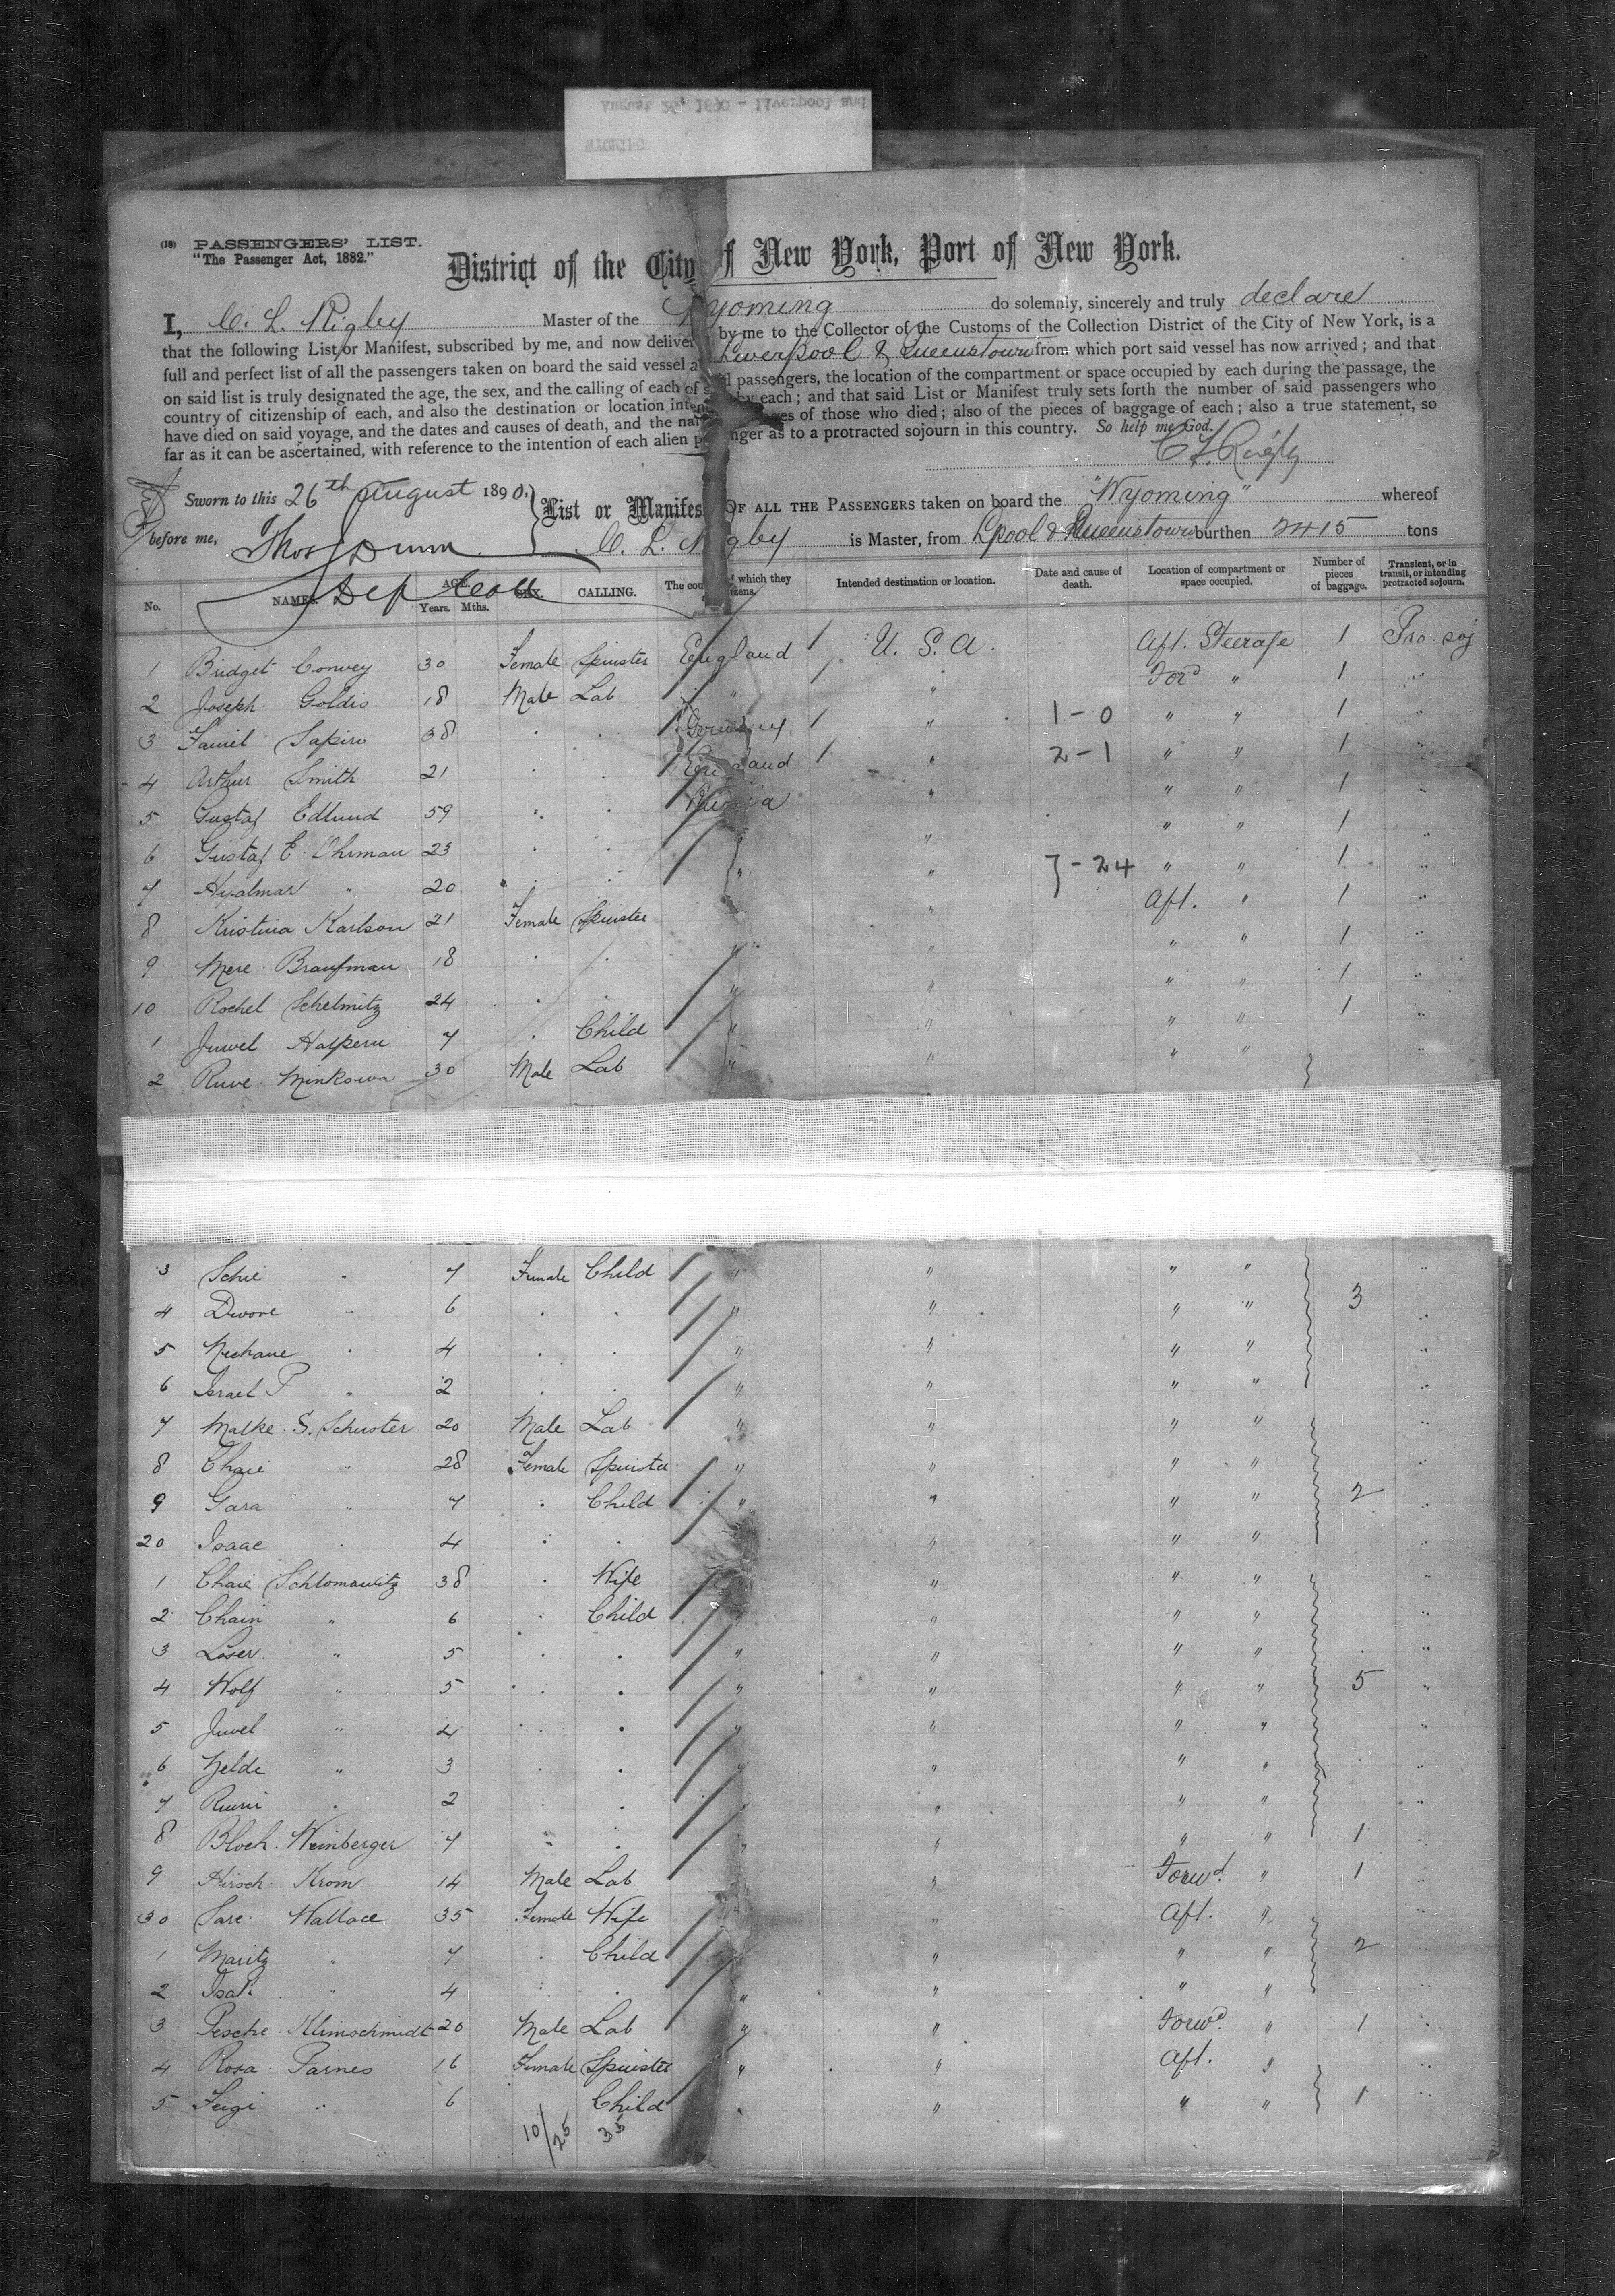 August 26, 1890 - Liverpool and
WYOMING
(18) PASSENGERS' LIST.
"The Passenger Act, 1882."
District of the City of New York, Port of New York.
I, C. L. Rigby Master of the Wyoming do solemnly, sincerely and truly declare
that the following List or Manifest, subscribed by me, and now deliver by me to the Collector of the Customs of the Collection District of the City of New York, is a
full and perfect list of all the passengers taken on board the said vessel a Liverpool & Queenstown from which port said vessel has now arrived; and that
on said list is truly designated the age, the sex, and the calling of each of s d passengers, the location of the compartment or space occupied by each during the passage, the
country of citizenship of each, and also the destination or location inten by each; and that said List or Manifest truly sets forth the number of said passengers who
have died on said voyage, and the dates and causes of death, and the na es of those who died; also of the pieces of baggage of each; also a true statement, so
far as it can be ascertained, with reference to the intention of each alien p nger as to a protracted sojourn in this country. So help me God.
C L Rigby
Sworn to this 26th August 1890, List or Manifes OF ALL THE PASSENGERS taken on board the "Wyoming" whereof
before me, Thos J Dunn C. L. Rigby is Master, from Lpool & Queenstown burthen 2415 tons
Dep Coll
No. NAMES. AGE. Years. Mths. SEX. CALLING. The cou of which they izens. Intended destination or location. Date and cause of death. Location of compartment or space occupied. Number of pieces of baggage. Transient, or in transit, or intending protracted sojourn.
1 Bridget Convey 30 Female Spinster England 1 U. S. A. Aft. Steerage 1 Pro. soj
2 Joseph Goldis 18 Male Lab " 1 " Ford " 1 "
3 Sapiro 38 " " 1 Germany 1 " 1-0 " " 1 "
4 Arthur Smith 21 " " 1 England 1 " 2-1 " " 1 "
5 Gustaf Edlund 59 " " Russia " " " 1 "
6 Gustaf E. Ohrman 23 " " " " " 1 "
7 Hjalmar " 20 " " " " } - 24 " " 1 "
8 Kristina Karlson 21 Female Spinster " Aft. " 1 "
9 Mere Braufman 18 " " " " " " 1 "
10 Rochel Schelmitz 24 " " " " " " 1 "
1 Juwel Halpern 7 " Child " " " " 1 "
2 Ruve Minkowa 30 Male Lab " " " " "
3 Schie " 7 Female Child " " " " "
4 Dwore " 6 " " " " " " 3 "
5 Nechane " 4 " " " " " " "
6 Israel P " 2 " " " " " " "
7 Malke S. Schuster 20 Male Lab " " " " "
8 Chaie " 28 Female Spinster " " " " "
9 Gara " 7 " Child " " " " 2 "
20 Isaac " 4 " " " " " "
1 Chaie Schlomawitz 38 " Wife " " " "
2 Chain " 6 " Child " " " "
3 Loser " 5 " " " " " " "
4 Wolf " 5 " " " " " " 5 "
5 Juwel " 4 " " " " " " "
6 Zelde " 3 " " " " " " "
7 " 2 " " " " " " "
8 Bloch Weinberger 7 " " " " " " 1 "
9 Hirsch Krom 14 Male Lab " Forwd. " 1 "
30 Sare Wallace 35 Female Wife " Aft. "
1 Maritz " 7 " Child " " " 2 "
2 " 4 " " " " " " "
3 Pesche Klimschmidt 20 Male Lab " " Forwd. " 1 "
4 Rosa Parnes 16 Female Spinster " " Aft. " "
5 Feigi " 6 Child " " " " 1 "
10/25 35